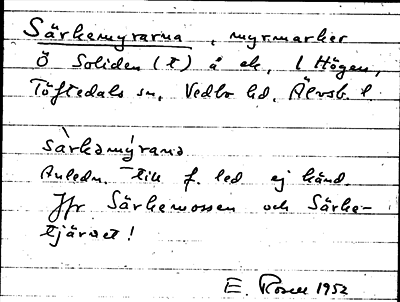 Särkemyrarna, myrmarker
Ö Soliden (t) å ek, l Högen,
Töftedals sn, Vedbo hd, Älvsb. l.
sàrkəmýrana
Anledn. till f. led ej känd.
Jfr Särkemossen och Särke-
tjärnet!
E. Rosell 1952